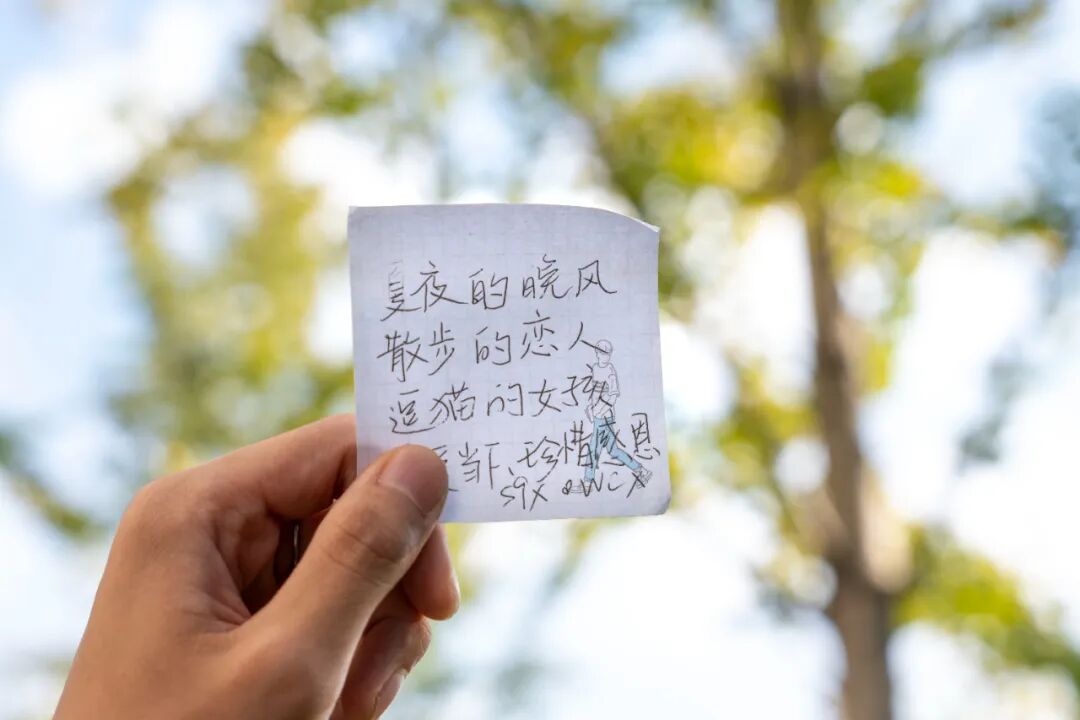 夏夜的晚风
散步的恋人
逗猫的女孩
当下、珍惜感恩